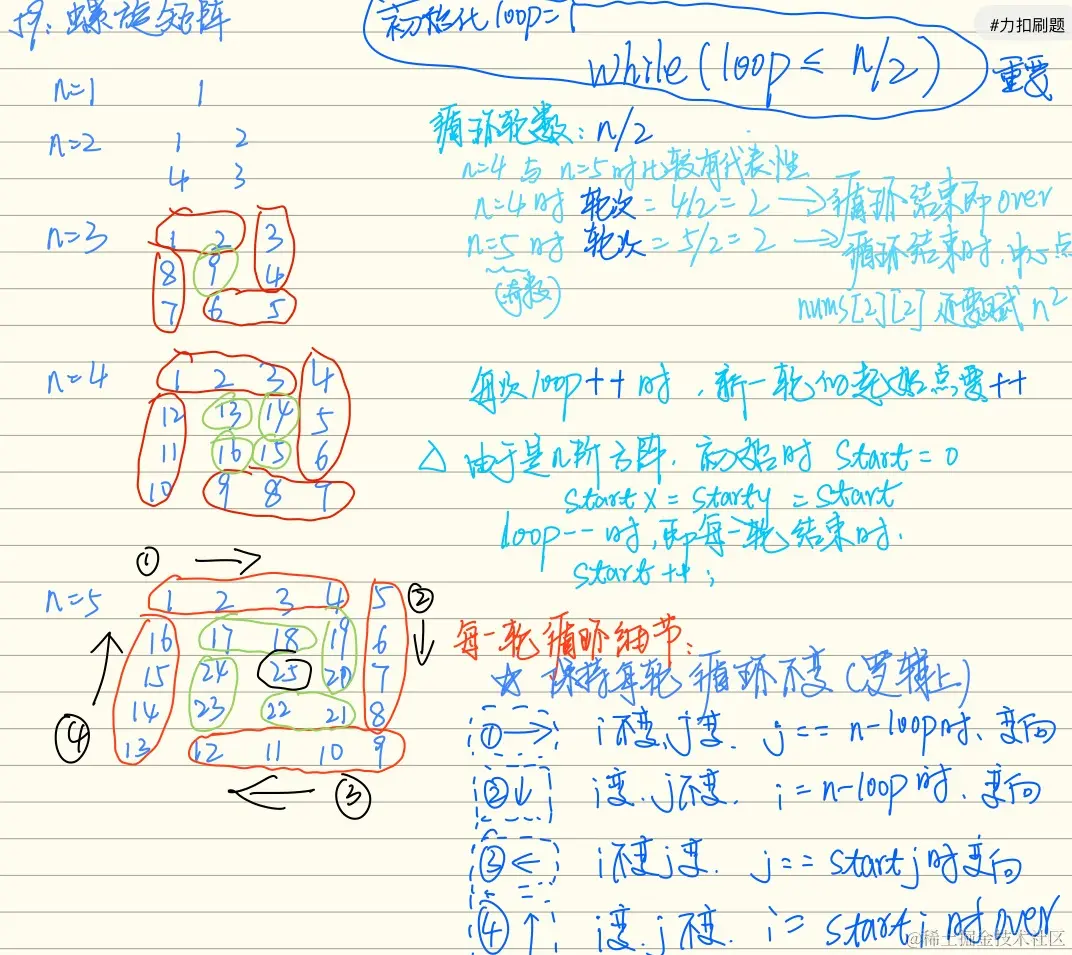 59: 螺旋矩阵
初始化loop=1
#力扣刷题
while(loop ≤ n/2)
重要
n=1 1
n=2 1 2
4 3
n=3 1 2 3
8 9 4
7 6 5
n=4 1 2 3 4
12 13 14 5
11 16 15 6
10 9 8 7
① →
n=5 1 2 3 4 5 ②
16 17 18 19 6 ↓
15 24 25 20 7
14 23 22 21 8
④ ↑
13 12 11 10 9
← ③
循环轮数: n/2
n=4 与 n=5 时比较有代表性
n=4 时 轮次 = 4/2 = 2 → 循环结束即over
n=5 时 轮次 = 5/2 = 2 → 循环结束时,中心点
(奇数)
nums[2][2] 还要赋 n²
每次loop++时,新一轮的起始点要++
△ 由于是n阶方阵,初始时 Start = 0
startx = starty = Start
loop-- 时,即每一轮结束时,
start++;
每一轮循环细节:
☆ 保持每轮循环不变(逻辑上)
①→ i不变,j变. j == n-loop时、变向
②↓ i变.j不变. i = n-loop时、变向
③← i不变j变. j == startj时变向
④↑ i变.j不变. i = starti 时over
@稀土掘金技术社区